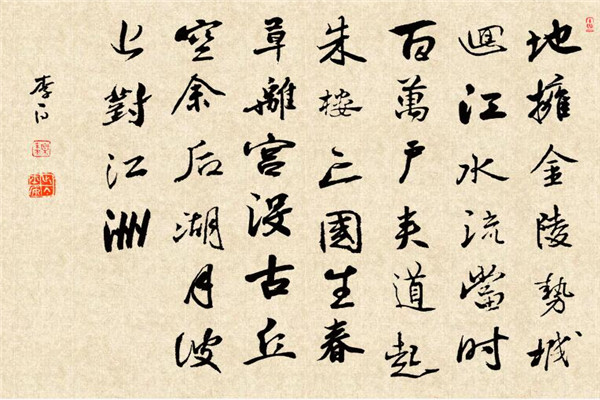 地擁金陵勢城
迴江水流當時
百萬户夹道起
朱楼亡國生春
草離宮没古丘
空余后湖月波
上對江洲
李白